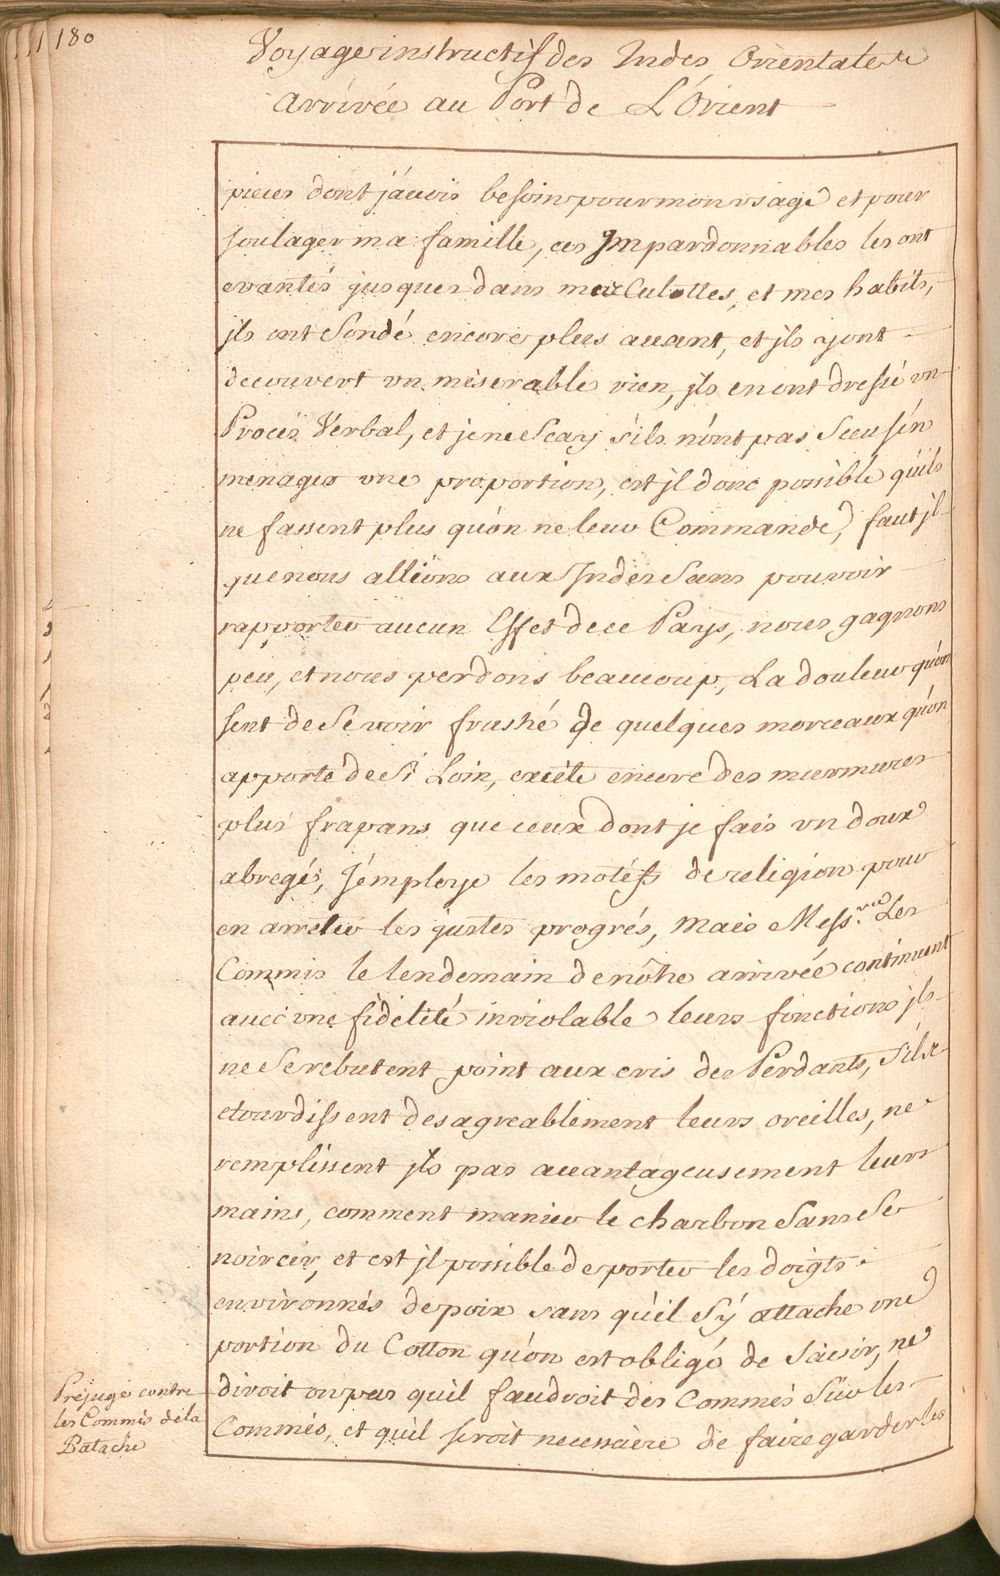 180
Voyage instructif des Indes Orientale &
Arrivée au Port de L'Orient
pieces dont j'auois besoin pour mon vsage et pour
soulager ma famille, ces Jmpardonnables les ont
evantés jusques dans mes Culottes, et mes habits,
jls ont Sondé encore plus auant, et jls y ont
decouvert vn miserable rien, jls en ont dressé vn
Procés Verbal, et je ne Scay s'ils n'ont pas Sceu s'en
menager vne proportion, est jl donc possible qu'ils
ne fassent plus qu'on ne leur Commande, faut jl
que nous allions aux Indes Sans pouvoir
rapporter aucun Effet de ce Pays, nous gagnons
peu, et nous perdons beaucoup, La douleur qu'on
sent de Se voir frustré de quelques morceaux qu'on
apporte de Si Loin, excite encore des murmures
plus frapans que ceux dont je fais vn doux
abregé, J'employe les motifs de religion pour
en arreter les justes progrés, Mais Mess.rs Les
Commis le lendemain de nôtre arrivée continuent
auec vne fidelité inviolable leurs fonctions jls
ne Se rebutent point aux cris des Perdants, S'ils
etourdissent desagreablement leurs oreilles, ne
remplissent jls pas auantageusement leurs
mains, comment manier le charbon Sans Se
noircir, et est jl possible de porter les doigts
environnés de poix sans qu'il S'y attache vne
portion du Cotton qu'on est obligé de Saisir, ne
diroit on pas qu'il faudroit des Commis Sur les
Commis, et qu'il seroit necessaire de faire garder les
Préjugé contre
les Commis de la
Patache